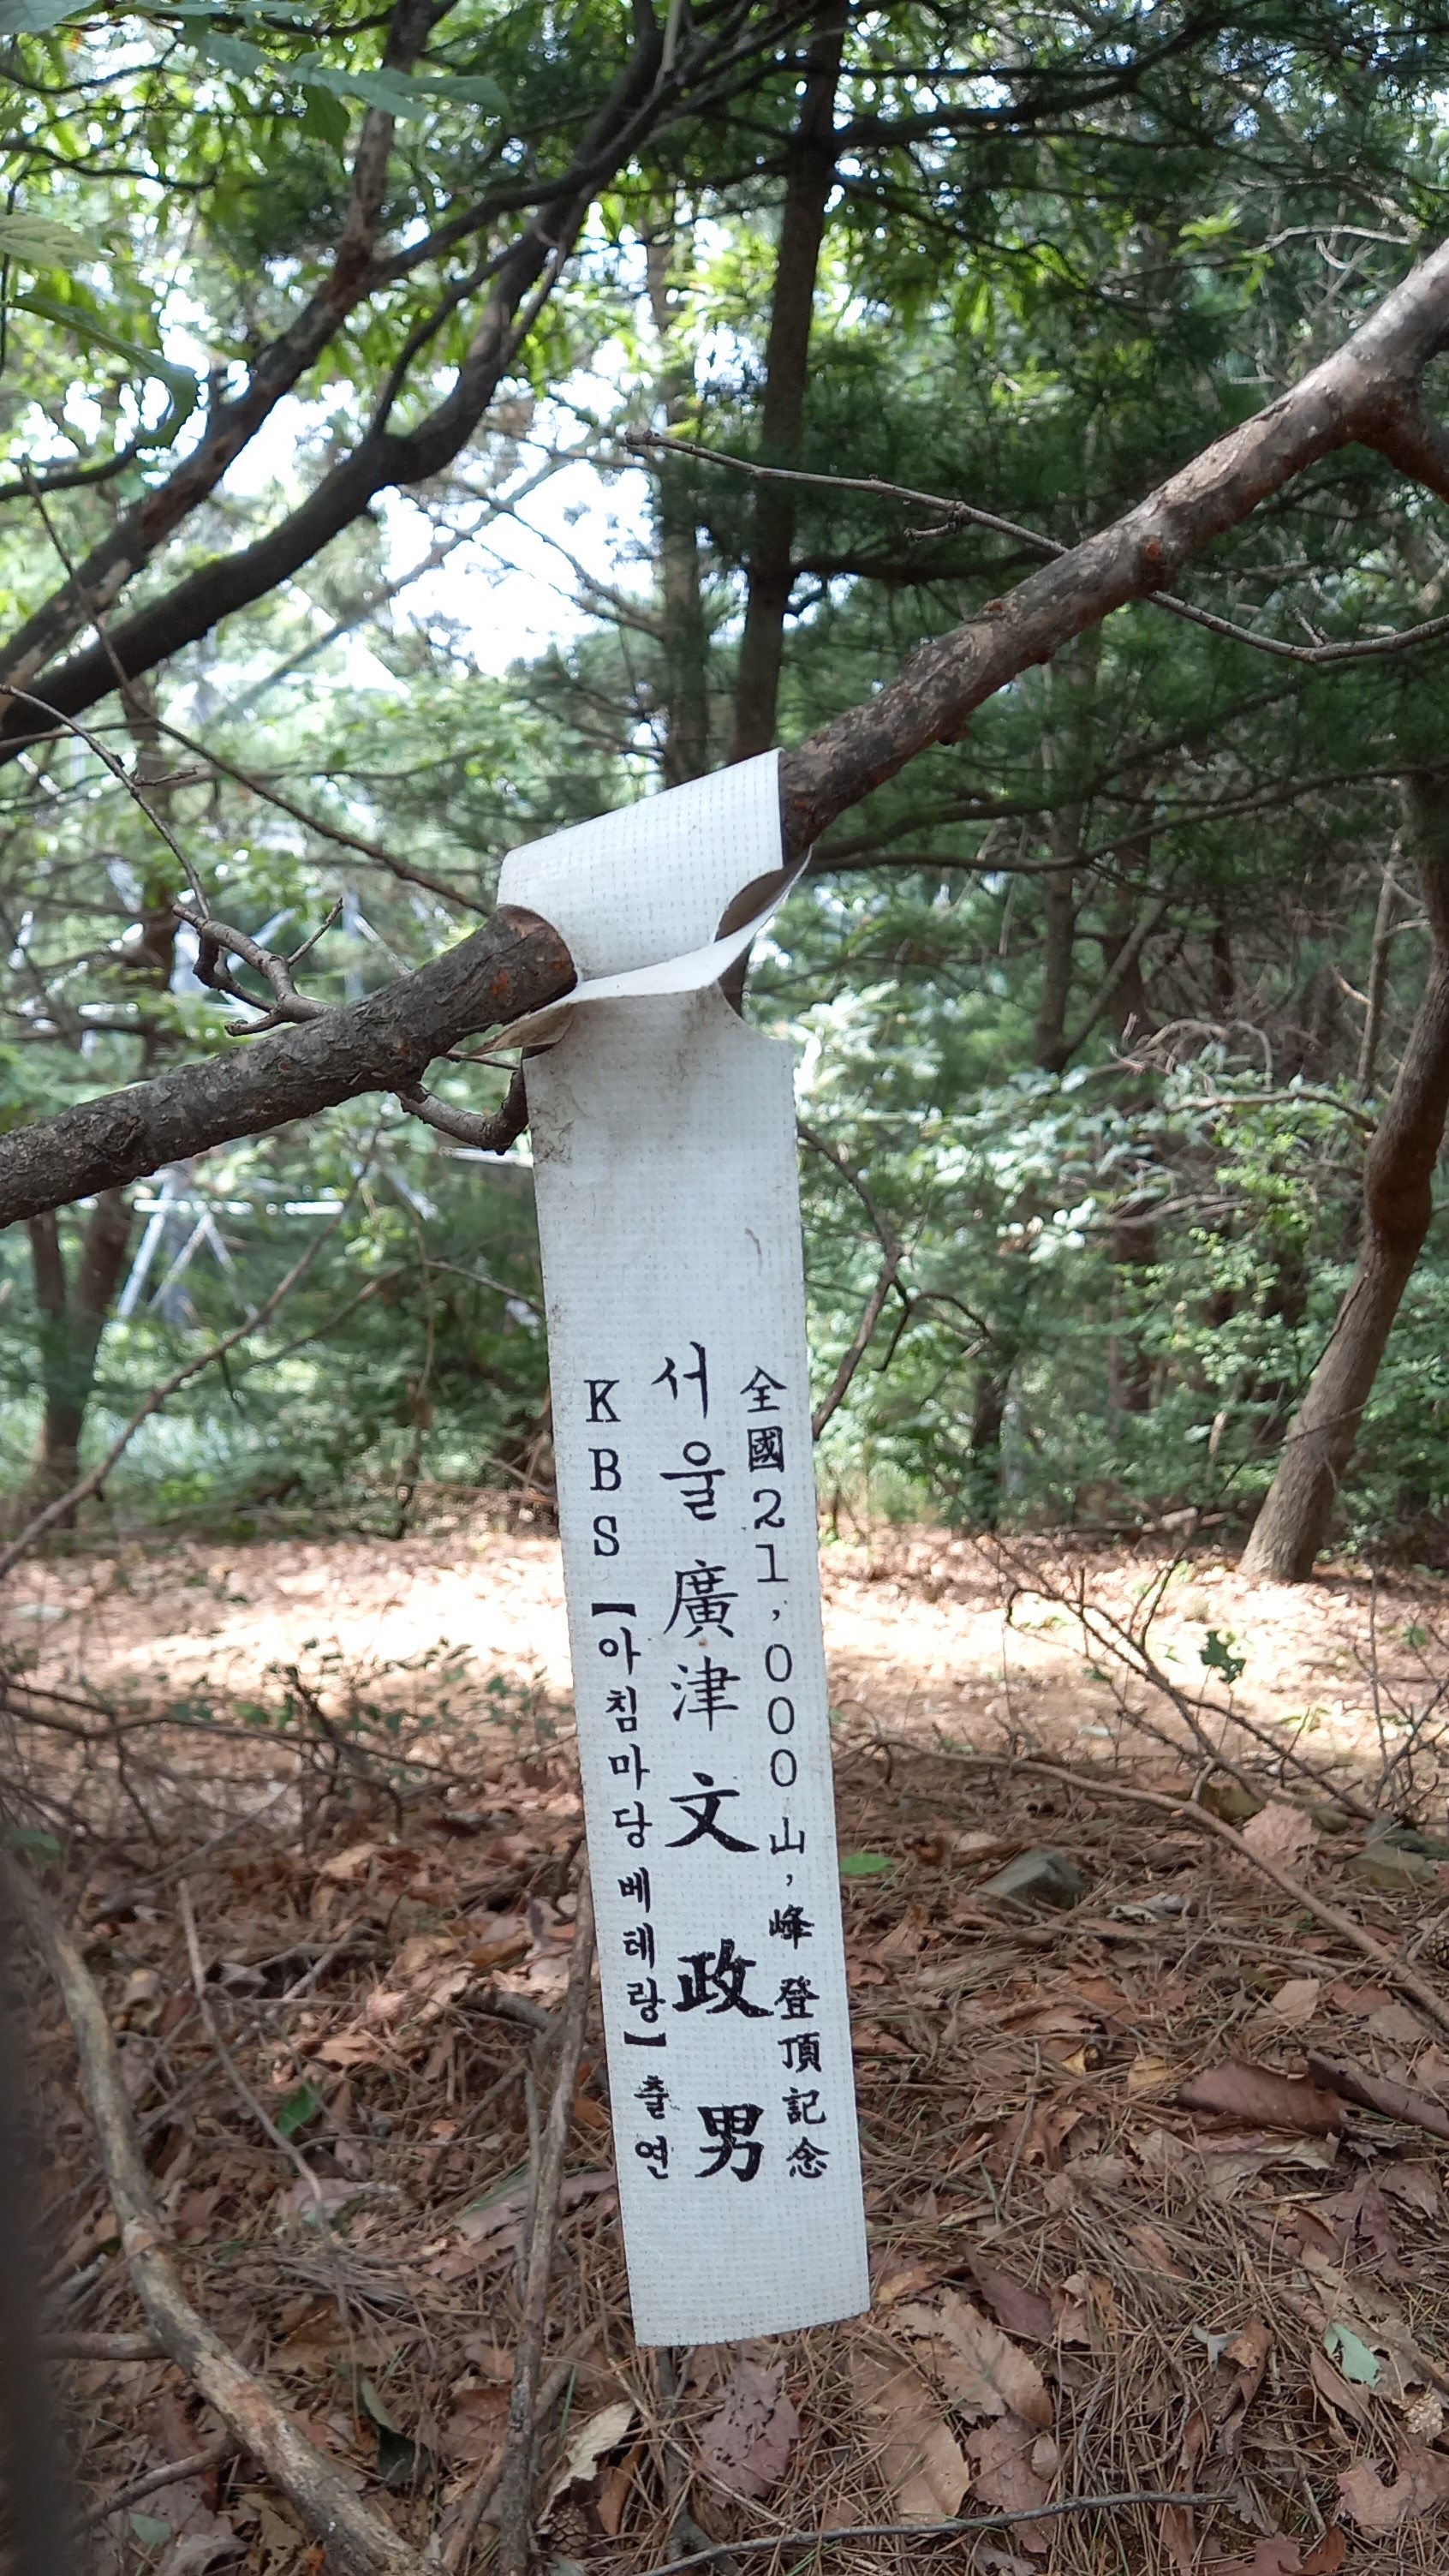 全國21,000山,峰 登頂記念
서울 廣津 文 政 男
KBS【아침마당베테랑】출연